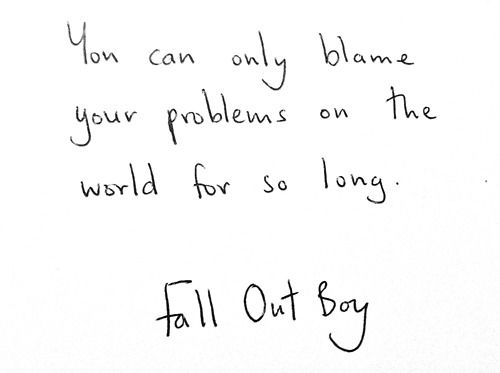 You can only blame
your problems on the
world for so long.
Fall Out Boy